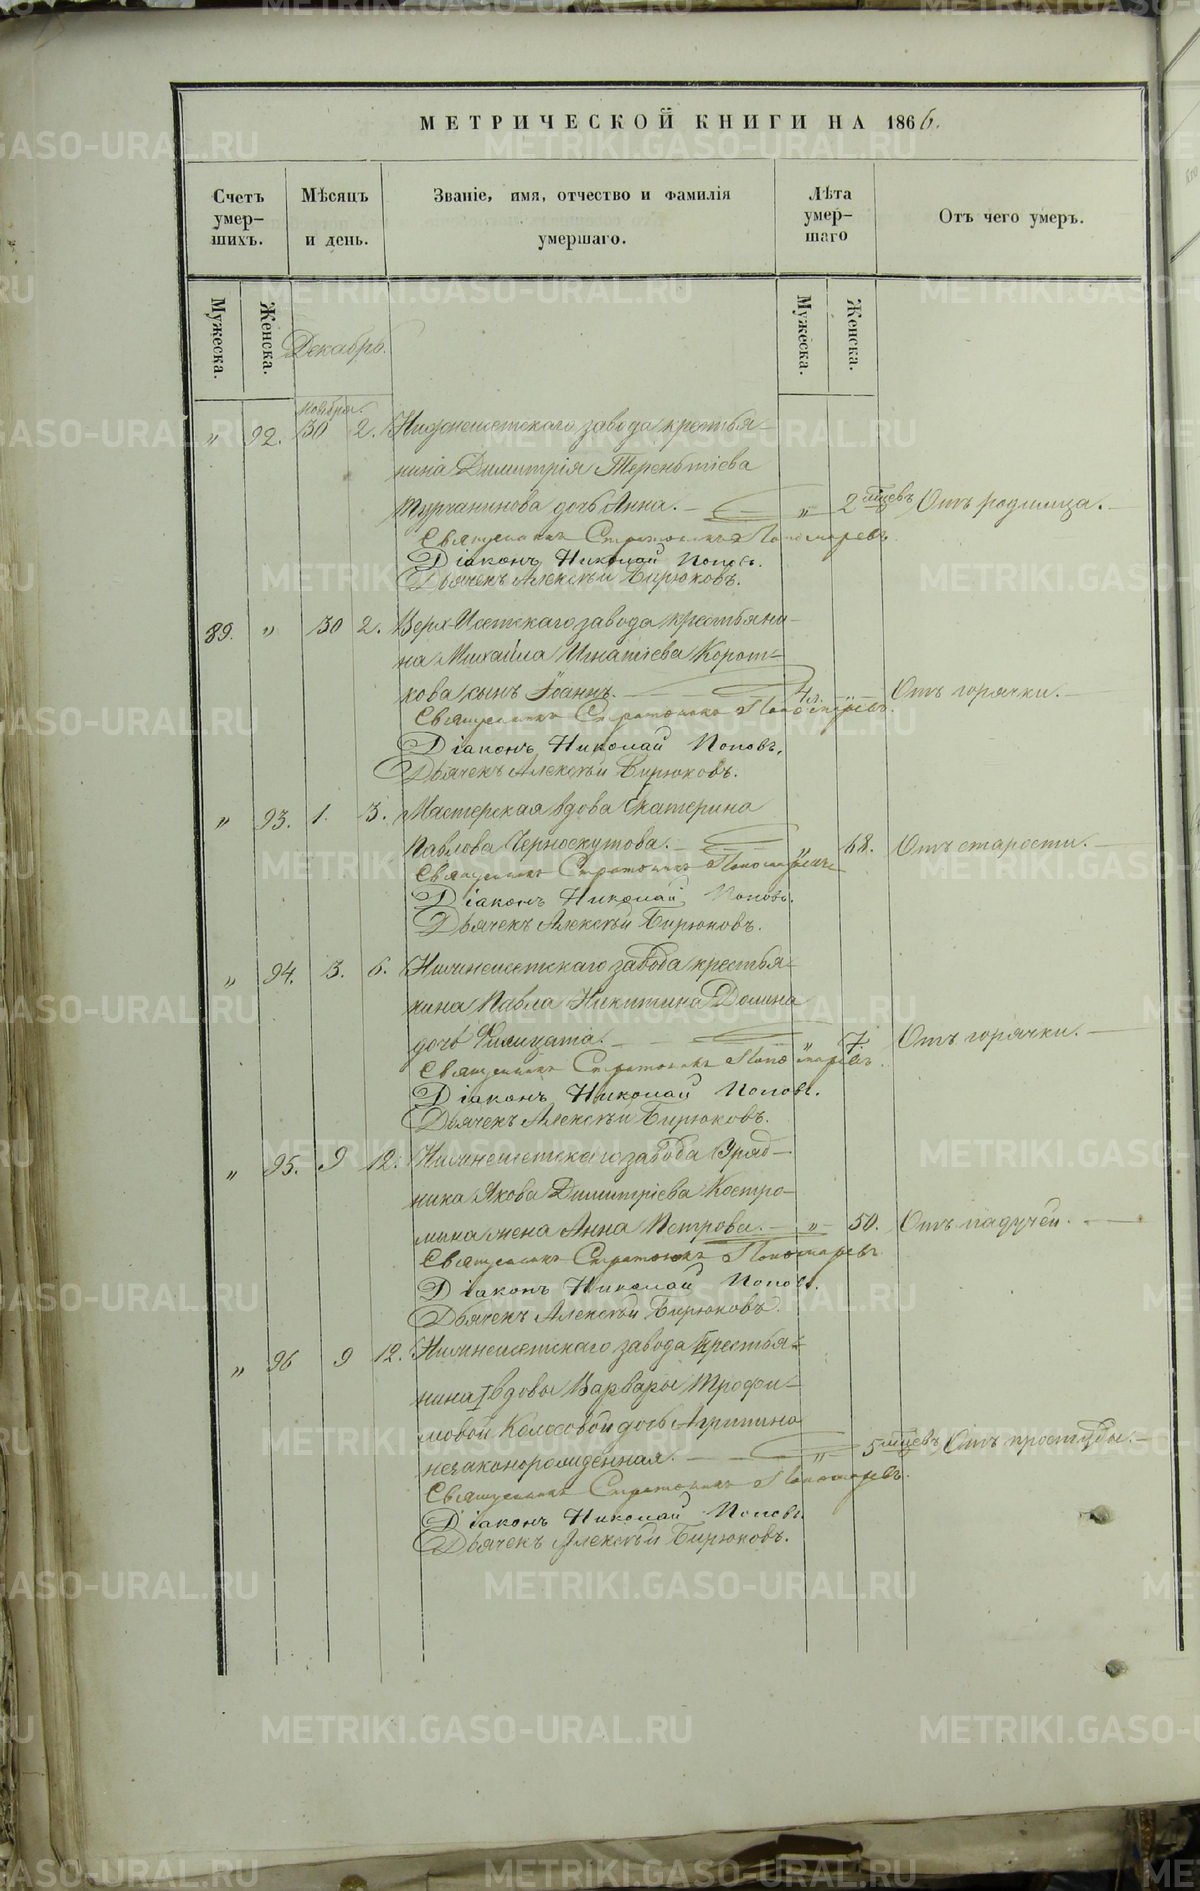 МЕТРИЧЕСКОЙ КНИГИ НА 1866.
Счетъ умер-
шихъ.
Мѣсяцъ
и день.
Званіе, имя, отчество и фамилія
умершаго.
Лѣта
умер-
шаго
Отъ чего умеръ.
Мужеска.
Женска.
Декабрь.
Мужеска.
Женска.
Ноября.
" 92. 30 2. Нижнеисетскаго завода крестья-
нина Димитрія Терентіева
Турчанинова дочь Анна. — " 2 мцевъ Отъ родимца. —
Священникъ Стратоникъ Пономаревъ
Діаконъ Николай Поповъ.
Дьячекъ Алексѣй Бирюковъ.
89. " 30 2. Верх-Исетскаго завода крестьяни-
на Михаила Игнатіева Корот-
кова сынъ Іоаннъ. — " — Отъ горячки. —
Священникъ Стратоникъ Пономаревъ.
Діаконъ Николай Поповъ.
Дьячекъ Алексѣй Бирюковъ.
" 93. 1. 3. Мастерская вдова Екатерина
Павлова Черноскутова. — " 68. Отъ старости. —
Священникъ Стратоникъ Пономаревъ
Діаконъ Николай Поповъ.
Дьячекъ Алексѣй Бирюковъ.
" 94. 3. 6. Нижнеисетскаго завода крестья-
нина Павла Никитина Домина
дочь Филицата. — " 7. Отъ горячки. —
Священникъ Стратоникъ Пономаревъ.
Діаконъ Николай Поповъ.
Дьячекъ Алексѣй Бирюковъ.
" 95. 9 12. Нижнеисетскаго завода Уряд-
ника Якова Димитріева Костро-
мина жена Анна Петрова. — " — 50. Отъ падучей. —
Священникъ Стратоникъ Пономаревъ
Діаконъ Николай Поповъ.
Дьячекъ Алексѣй Бирюковъ.
" 96 9 12. Нижнеисетскаго завода крестья-
нина вдовы Варвары Трофи-
мовой Колосовой дочь Агрипина
незаконорожденная. — " — 5 мцевъ Отъ простуды. —
Священникъ Стратоникъ Пономаревъ.
Діаконъ Николай Поповъ.
Дьячекъ Алексѣй Бирюковъ.
METRIKI.GASO-URAL.RU